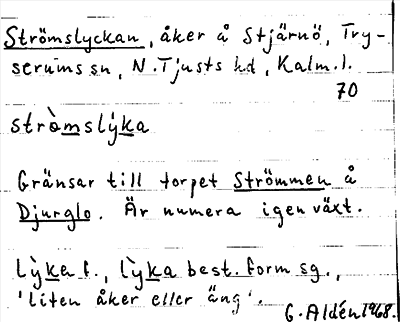 Strömslyckan, åker å Stjärnö, Try-
serums sn, N. Tjusts hd, Kalm. l.
70
stròmslýka
Gränsar till torpet Strömmen å
Djurglo. Är numera igenväxt.
lỳka f., lỳka best. form sg.,
'liten åker eller äng'.
G. Aldén 1968.